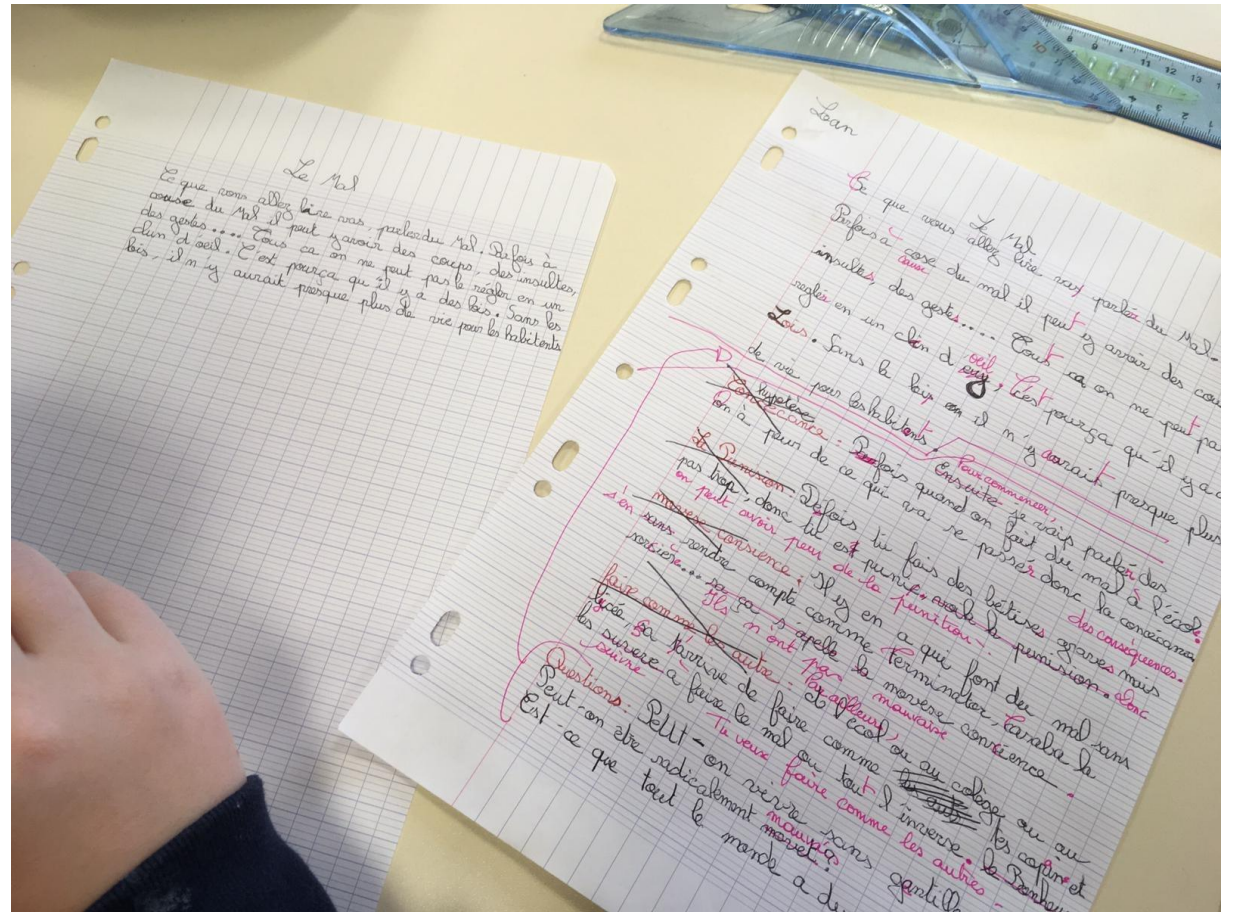 Le Mal
Ce que vous allez lire vas, parler du Mal. Parfois à
cause du Mal il peut y avoir des coups, des insultes,
des gestes.... Tous ca on ne peut pas le régler en un
clun d'oeil. C'est pourça qu'il y a des lois. Sans les
lois, il n'y aurait presque plus de vie pour les habitents
Loan
Le Mal
Ce que vous allez lire vas parlée du Mal.
Parfois a cose du mal il peut y avoir des cou
cause
insultes, des gestes.... Tout ca on ne peut pa
régler en un clin d oeil, C'est pourça qu'il y a
Lois. Sans le lois il n'y aurait presque plus
de vie pour les habitents.
Pour commencer,
Ensuite je vais parlér des
hypotèse
Consécance : Parfois quand on fait du mal à l'école
des conséquences.
on à peur de ce qui va se passér donc la consécance
La Punision : Defois tu fais des bétises graves mais
pas trop, donc tu est punie, la punision. donc
on peut avoir peur de la punition.
mavese consience : Il y en a qui font du mal sans
s'en
sans rendre compte comme Terminator, Karaba la
sorcière.... sa ça s'apelle la mavese consience.
Ils n'ont pas mauvaise
faire comme les autre : Par ailleurs, à l'écol ou au colège ou au
lycée, Sa t'arrive de faire comme les copin et
les suivere à faire le mal ou tout l'inverse. le Bonheu
suivre Tu veux faire comme les autres.
Questions. Peut-on vivre sans gentille
Peut-on être radicalement mavet?
mauvais
Est-ce que tout le monde a du
10
11
12
13